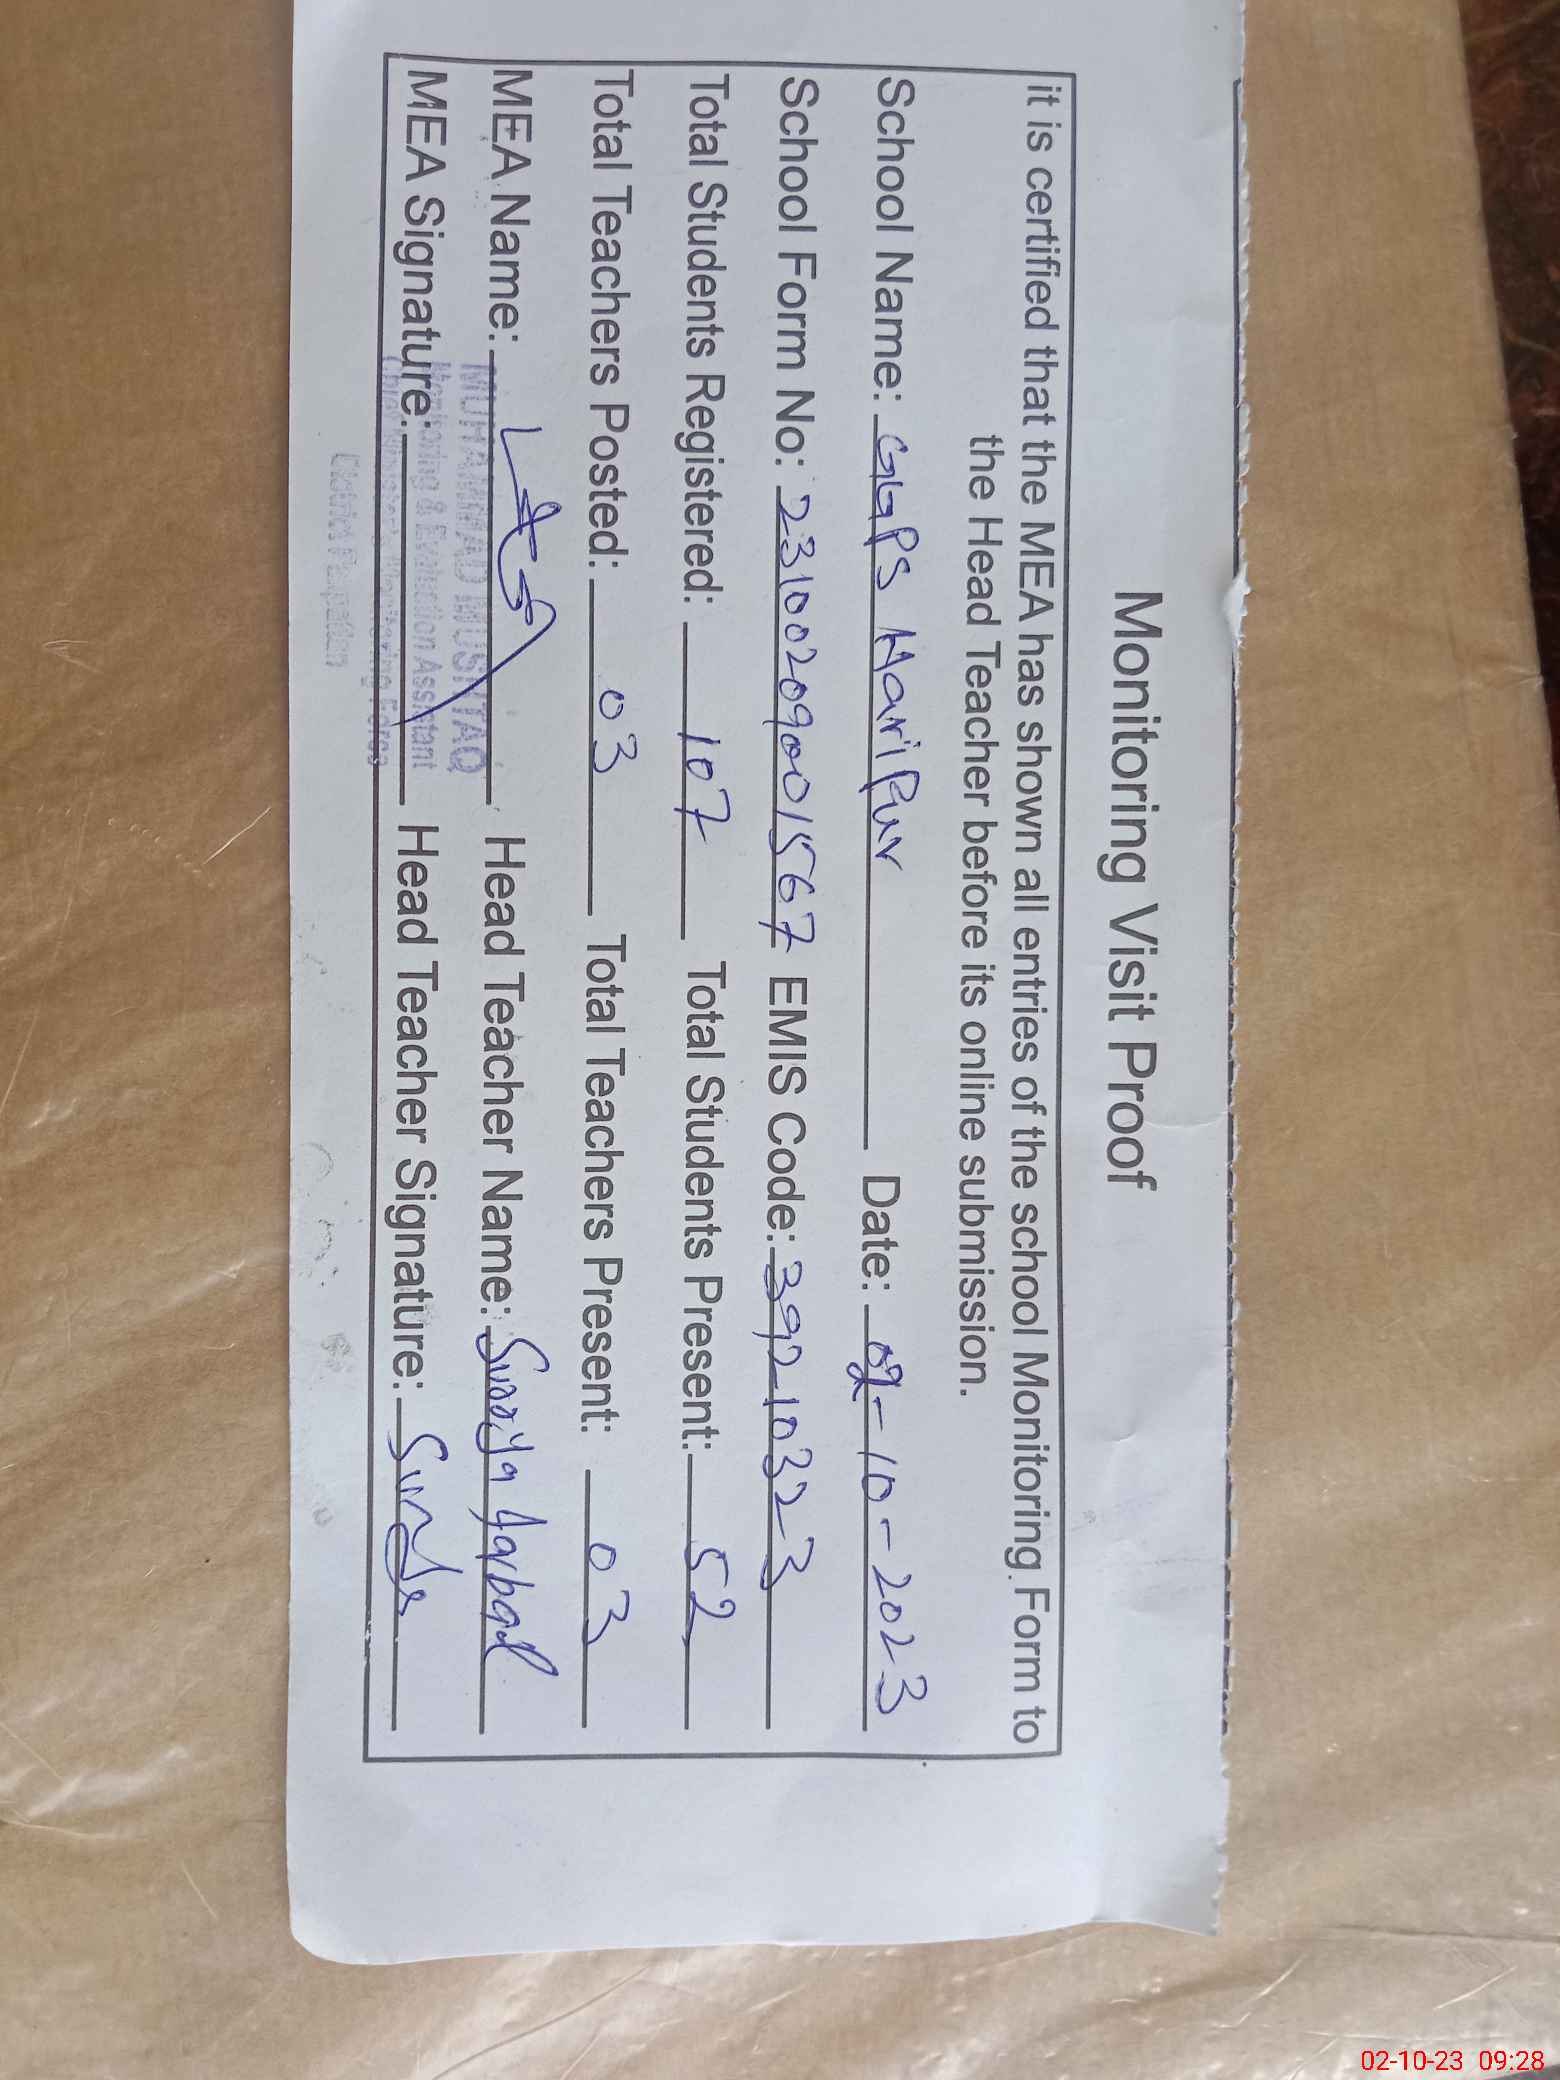 Monitoring Visit Proof
it is certified that the MEA has shown all entries of the school Monitoring Form to
the Head Teacher before its online submission.
School Name: GGPS HariPur Date: 02-10-2023
School Form No: 23100209001567 EMIS Code: 39210323
Total Students Registered: 107 Total Students Present: 52
Total Teachers Posted: 03 Total Teachers Present: 03
MEA Name: Head Teacher Name:
MUHAMMAD MUSHTAQ
Monitoring & Evaluation Assistant
MEA Signature: Head Teacher Signature:
Chief Minister's Monitoring Force
District Pakpattan
02-10-23 09:28